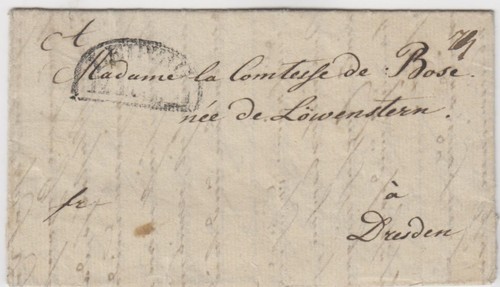 A
Madame la Comtesse de Bose.
née de Löwenstern.
fr
à
Dresden